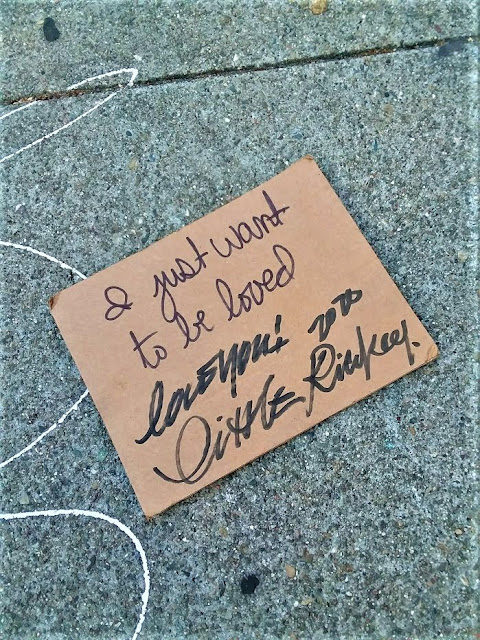 I just want
to be loved
love you! 2020
Little Rickey.